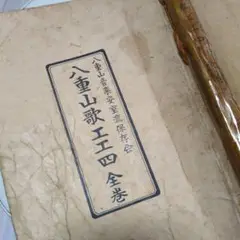 八重山音楽安室流保存会
八重山歌工工四 全巻